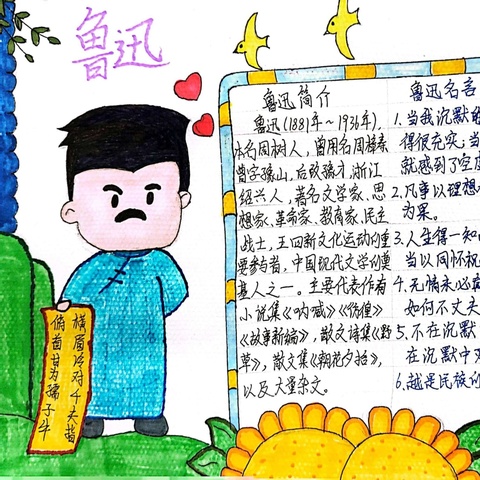 鲁迅
鲁迅简介
鲁迅(1881年~1936年),
本名周树人，曾用名周樟寿
曾字豫山，后改豫才，浙江
绍兴人，著名文学家、思
想家、革命家、教育家、民主
战士，五四新文化运动的重
要参与者，中国现代文学的奠
基人之一。主要代表作有
小说集《呐喊》《彷徨》
《故事新编》，散文诗集《野
草》，散文集《朝花夕拾》，
以及大量杂文。
鲁迅名言
1.当我沉默的
得很充实，当
就感到了空
2.凡事以理想
为果。
3.人生得一知
当以同怀
4.无情未必
如何不丈夫
5.不在沉默
在沉默中
6.越是民族
横眉冷对千夫指
俯首甘为孺子牛